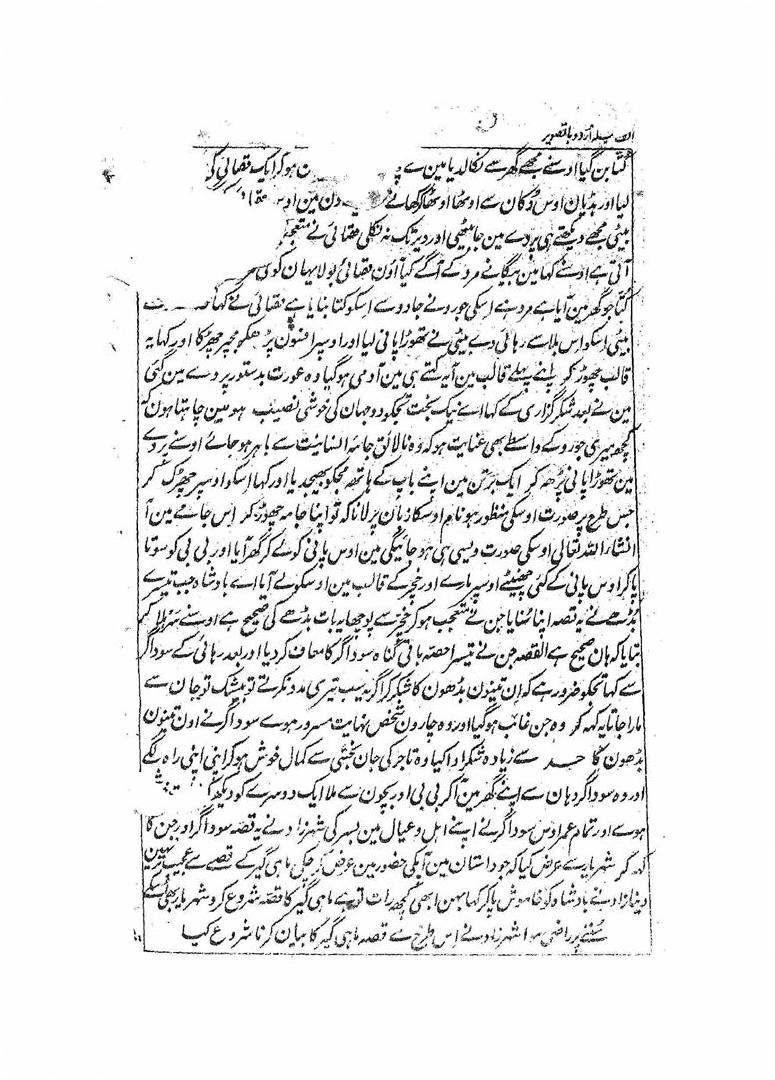 الف لیلہ اردو باتصویر
کتا بن گیا اوسنے مجھے گھر سے نکالدیا مین نے ہوکر ایک قصائی کی
لیا اور ہڈیان اوس دُکان سے اوٹھا اوٹھا کھانے دن مین اوس
بیٹی مجھے دیکھتے ہی پردے مین جا بیٹھی اور دیر تک نہ نکلی قصائی نے متعجب
آتی ہے اوسنے کہا مین بیگانے مرد کے آگے کیا آؤن قصائی بولا یہان کوئی
کتا جو گھر مین آیا ہے مرد ہے اِسکی جورو نے جادو سے اسکو کتا بنایا ہے قصائی نے کہا
بیٹی اسکو اِس بلا سے رہائی دے بیٹی نے تھوڑا پانی لیا اور اوسپر افسون پڑھکر مجھپر چھڑکا اور کہا یہ
قالب چھوڑ کر اپنے پہلے قالب مین آ یہ کہتے ہی مین آدمی ہوگیا وہ عورت بدستور پردے مین گئی
مین نے بعد شکر گزاری کے کہا اے نیک بخت تجکو دو جہان کی خوشی نصیب ہو مین چاہتا ہون کہ
کچھ میری جورو کے واسطے بھی عنایت ہو کہ وہ نالائق جامۂ انسانیت سے باہر ہو جائے اوسنے پردے
مین تھوڑا پانی پڑھ کر ایک برتن مین اپنے باپ کے ہاتھ مجکو بھیجدیا اور کہا اسکو اوسپر چھڑک کر
جس طرح پر صورت اوسکی منظور ہو نام اوسکا زبان پر لانا کہ تو اپنا جامہ چھوڑ کر اِس جامے مین آ
انشاء اللہ تعالی اوسکی صورت ویسی ہی ہو جائیگی مین اوس پانی کو لے کر گھر آیا اور بی بی کو سوتا
پاکر اوس پانی کے کئی چھینٹے اوسپر مارے اور خچر کے قالب مین اوسکو لے آیا اے بادشاہ جب تیسرے
بڈھے نے یہ قصہ اپنا سُنایا جن نے متعجب ہوکر خچر سے پوچھا یہ بات بڈھے کی صحیح ہے اوسنے سر ہلا کر
بتایا کہ ہان صحیح ہے القصہ جن نے تیسرا حصہ باقی گناہ سوداگر کا معاف کر دیا اور بعد رہائی کے سوداگر
سے کہا تجکو ضرور ہے کہ اِن تینون بڈھون کا شکر کر اگر یہ سب تیری مدد نکرتے تو بیشک تو جان سے
مارا جاتا یہ کہہ کر وہ جن غائب ہوگیا اور وہ چارون شخص نہایت مسرور ہوے سوداگر نے اون تینون
بڈھون کا حد سے زیادہ شکر ادا کیا وہ تاجر کی جان بخشی سے کمال خوش ہوکر اپنی اپنی راہ لگے
اور وہ سوداگر وہان سے اپنے گھر مین آکر بی بی اور بچون سے ملا ایک دوسرے کو دیکھ
ہوے اور تمام عمر اوس سوداگر نے اپنے اہل و عیال مین بسر کی شہرزاد نے یہ قصہ سوداگر اور جن کا
کہہ کر شہریار سے عرض کیا کہ جو داستان مین آپکی حضور مین عرض کر چکی ماہی گیر کے قصے سے عجیب تر نہین
دینازاد نے بادشاہ کو خاموش پاکر کہا بہن ابھی کچھ رات تو ہے ماہی گیر کا قصہ شروع کرو شہریار بھی اسکے
سُننے پر راضی ہوا شہرزاد نے اِس طرح سے قصہ ماہی گیر کا بیان کرنا شروع کیا